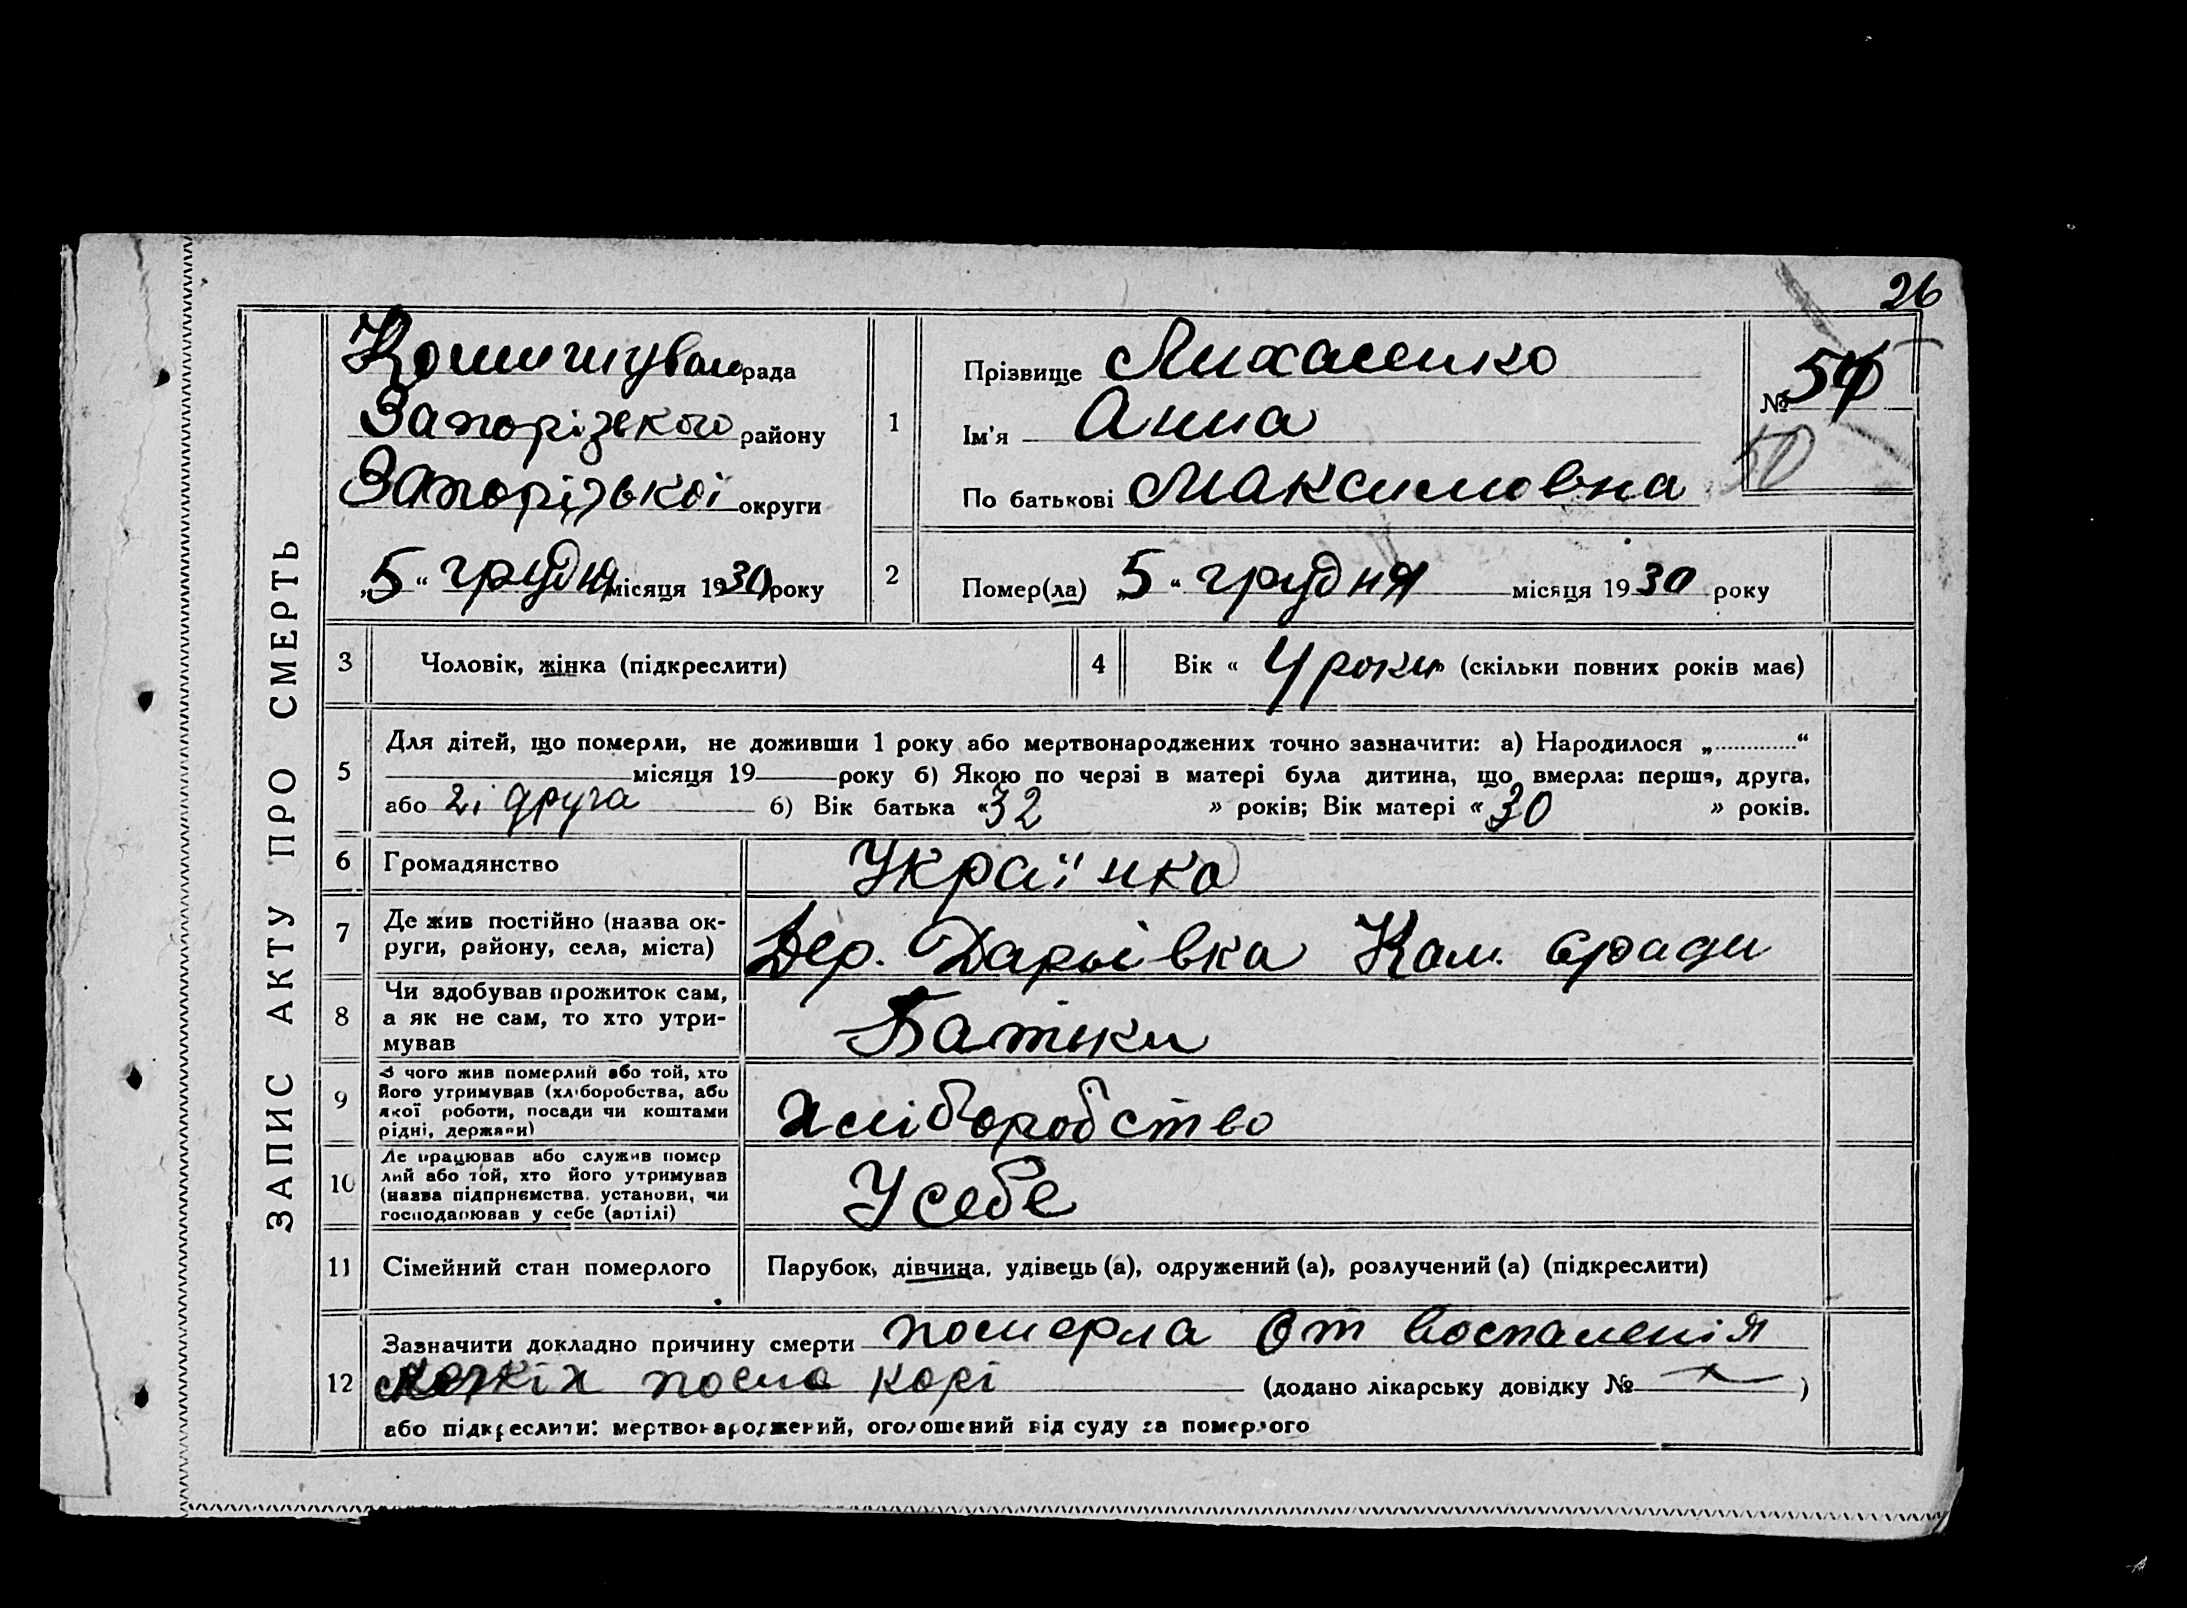 26
Комишуван рада
Запорізского району
Запорізької округи
„5“ грудня місяця 1930 року
1
Прізвище Михасенко
Ім'я Анна
По батькові Максимовна
№ 50
2
Помер(ла) „5“ грудня місяця 1930 року
ЗАПИС АКТУ ПРО СМЕРТЬ
3 Чоловік, жінка (підкреслити)
4 Вік « 4 роки » (скільки повних років має)
5 Для дітей, що померли, не доживши 1 року або мертвонароджених точно зазначити: а) Народилося „.............“
місяця 19 року б) Якою по черзі в матері була дитина, що вмерла: перша, друга,
або 2і друга б) Вік батька «32 » років; Вік матері «30 » років.
6 Громадянство Украінка
7 Де жив постійно (назва ок-
руги, району, села, міста)
Дер. Дарьівка Ком. с/ради
8 Чи здобував прожиток сам,
а як не сам, то хто утри-
мував
Батьки
9 З чого жив померлий або той, хто
його утримував (хліборобства, або
якої роботи, посади чи коштами
рідні, держави)
хліборобство
10 Де працював або служив помер
лий або той, хто його утримував
(назва підприємства, установи, чи
господарював у себе (артілі)
У себе
11 Сімейний стан померлого Парубок, дівчина, удівець (а), одружений (а), розлучений (а) (підкреслити)
12 Зазначити докладно причину смерти померла от воспаленія
легкіх посла корі (додано лікарську довідку № )
або підкреслити: мертвонароджений, оголошений від суду за померлого